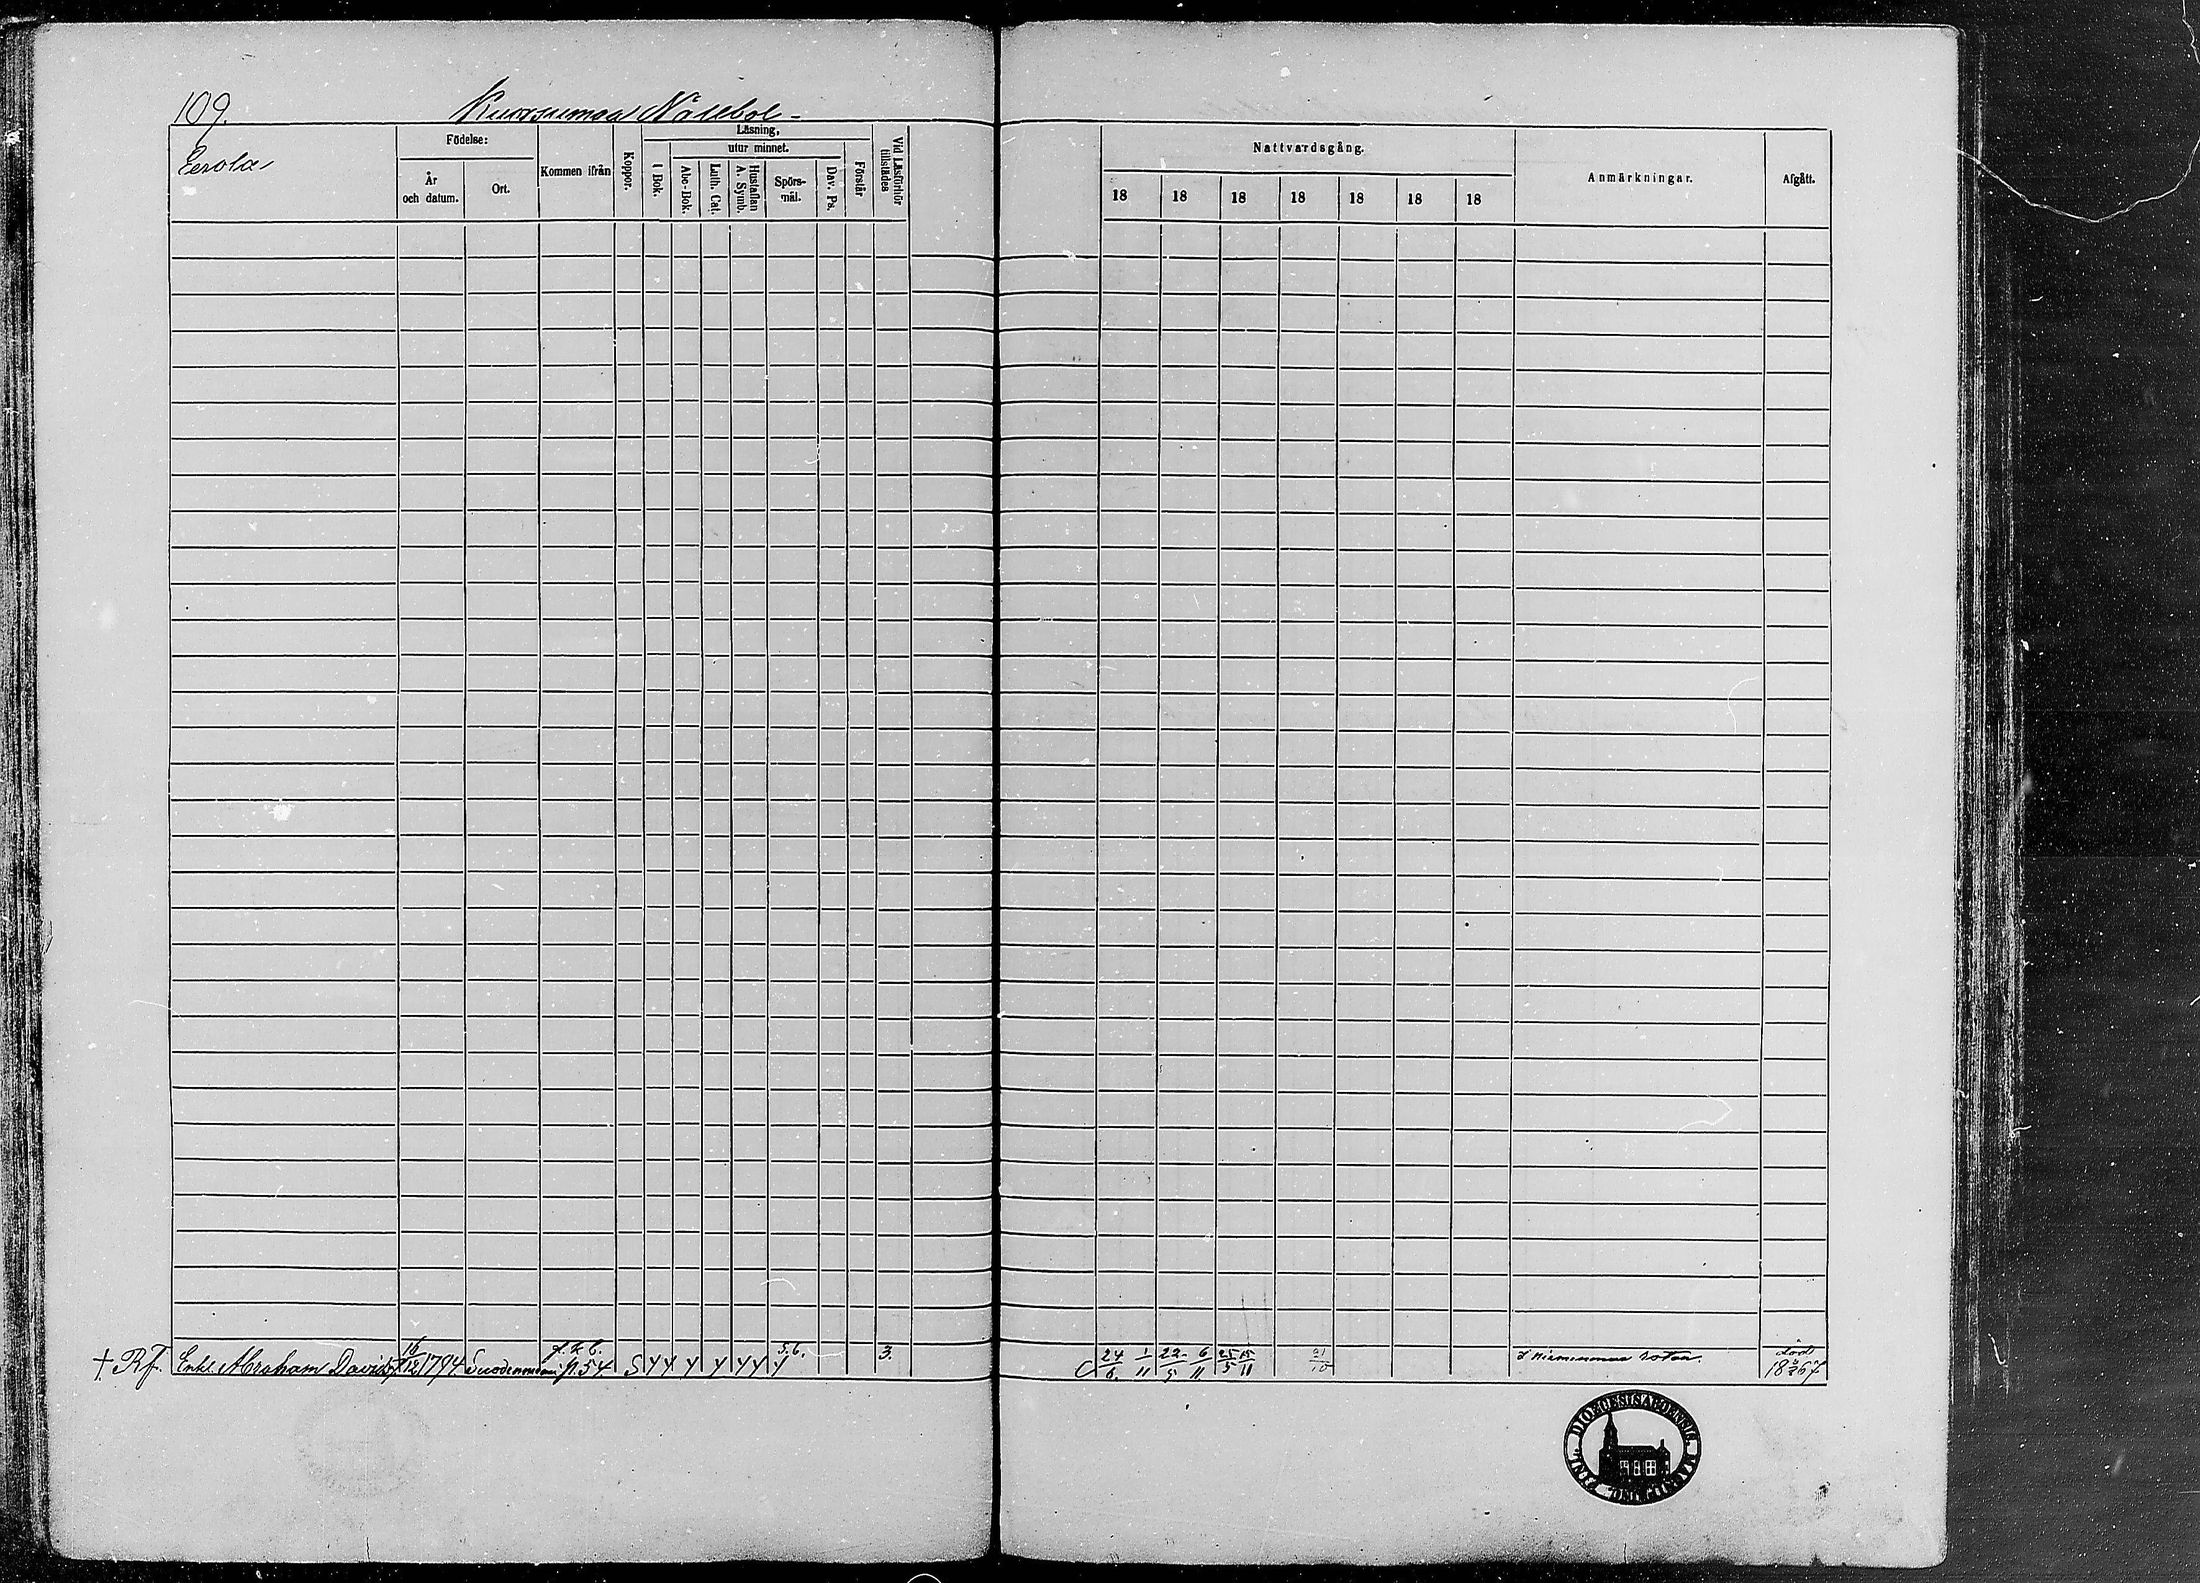 109.
Eerola
Födelse:
År och datum.
Ort.
Kommen ifrån
Koppor.
Läsning,
utur minnet.
I Bok.
Abc-Bok.
Luth. Cat.
Hustaflan A. Symb.
Spörs-mål.
Dav. Ps.
Förstår
Vid Läsförhör tillstädes
Nattvardsgång.
18 18 18 18 18 18 18
Anmärkningar.
Afgått.
† Rf. Enkl. Abraham 16/12 1794. p. 54. S 5.6. 3.
24/6. 1/11 22/5 6/11 25/5 15/11 21/10 roten. död